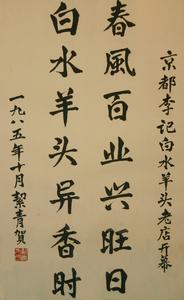 京都李记白水羊头老店开幕
春風百业兴旺日
白水羊头异香时
一九八五年十月 絜青贺